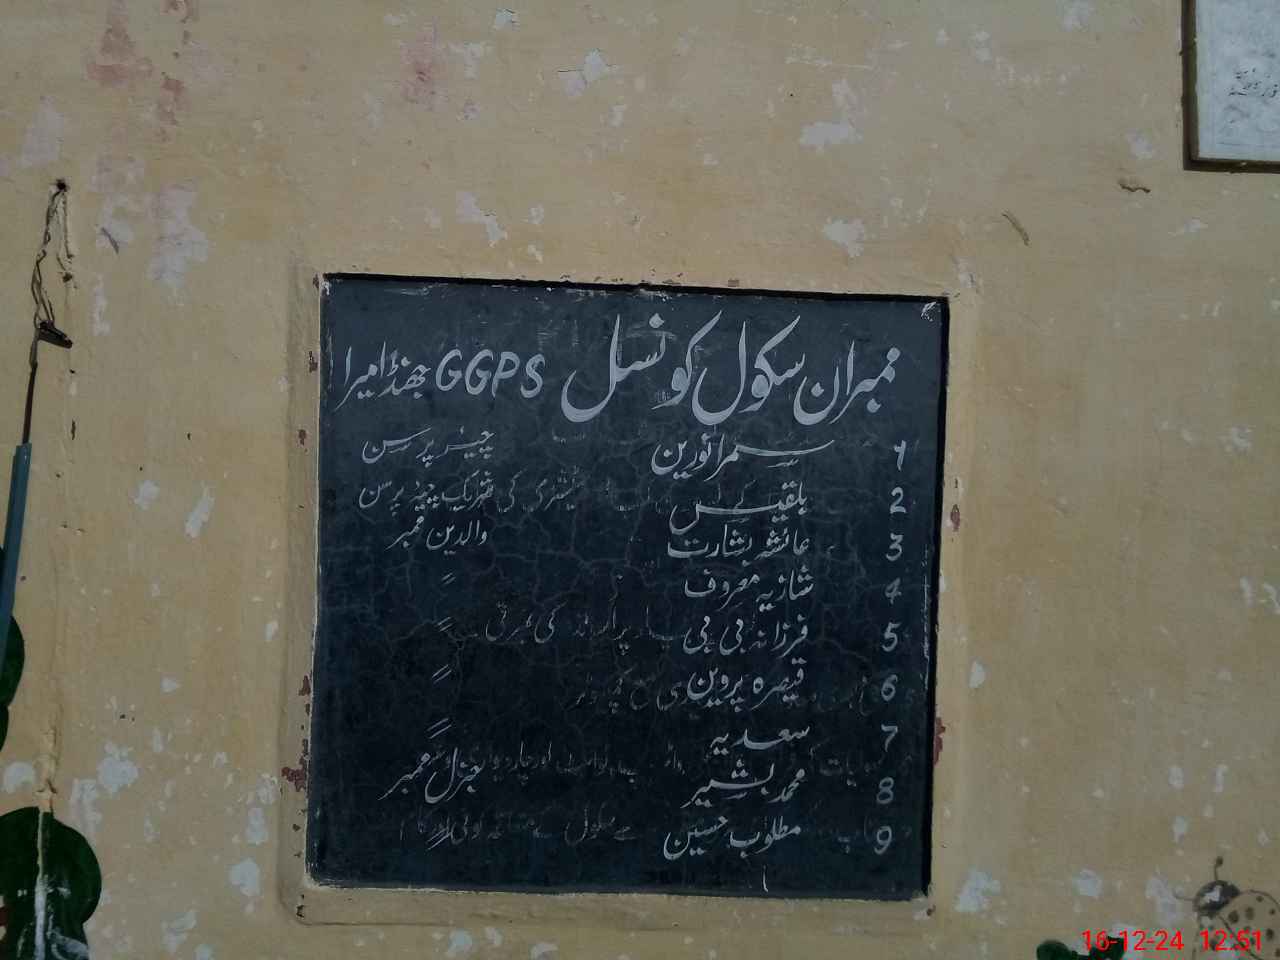 ممبران سکول کونسل GGPS جھنڈا میرا
1 سمرا نورین چیئر پرسن
2 بلقیس شریک چیئر پرسن
3 عائشہ بشارت والدین ممبر
4 شازیہ معروف 〃
5 فرزانہ بی بی 〃
6 قیصرہ پروین 〃
7 سعدیہ 〃
8 محمد بشیر جنرل ممبر
9 مطلوب حسین 〃
16-12-24 12:51